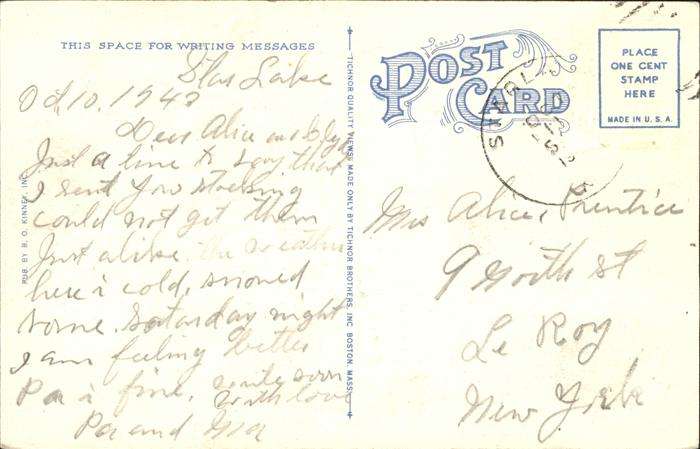 THIS SPACE FOR WRITING MESSAGES
Star Lake
Oct. 10. 1942
Dear Alice and
Just a line to say that
I sent you stocking
could not get them
Just alike. the weather
here is cold, snowed
some. Saturday night
I am feeling better
Pa is fine. write soon
with love
Pa and Ma
PUB. BY B. O. KINNEY, INC.
TICHNOR QUALITY VIEWS, MADE ONLY BY TICHNOR BROTHERS, INC. BOSTON, MASS.
POST
CARD
PLACE
ONE CENT
STAMP
HERE
MADE IN U. S. A.
Mrs Alice, Prentice
9 North St
Le Roy
New York